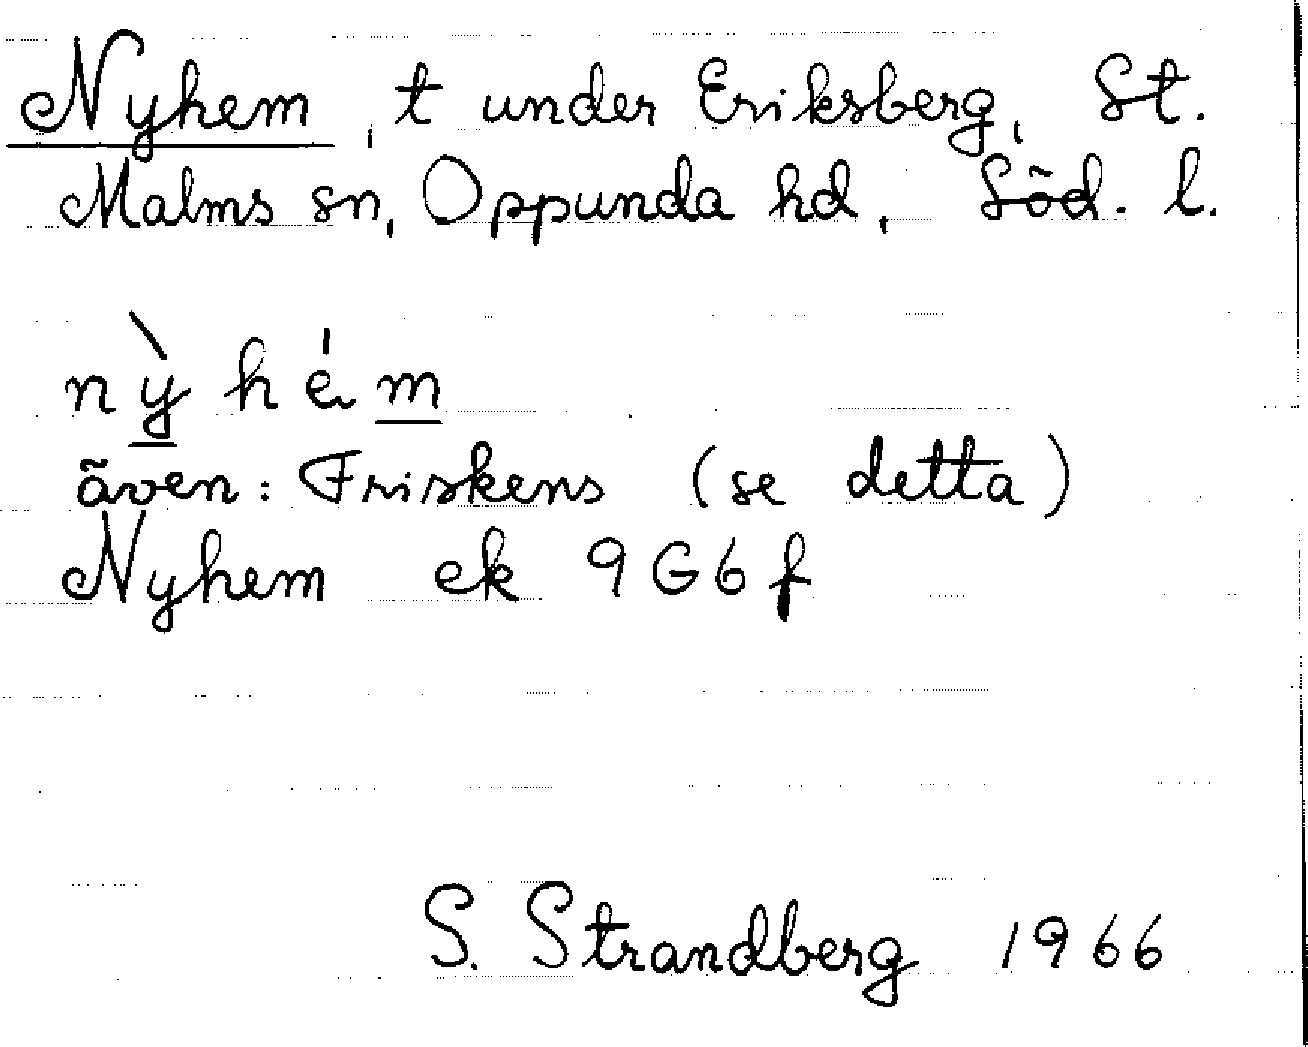 Nyhem, t under Eriksberg, St.
Malms sn, Oppunda hd, Söd. l.
nỳhém
även: Friskens (se detta)
Nyhem ek 9G6f
S. Strandberg 1966